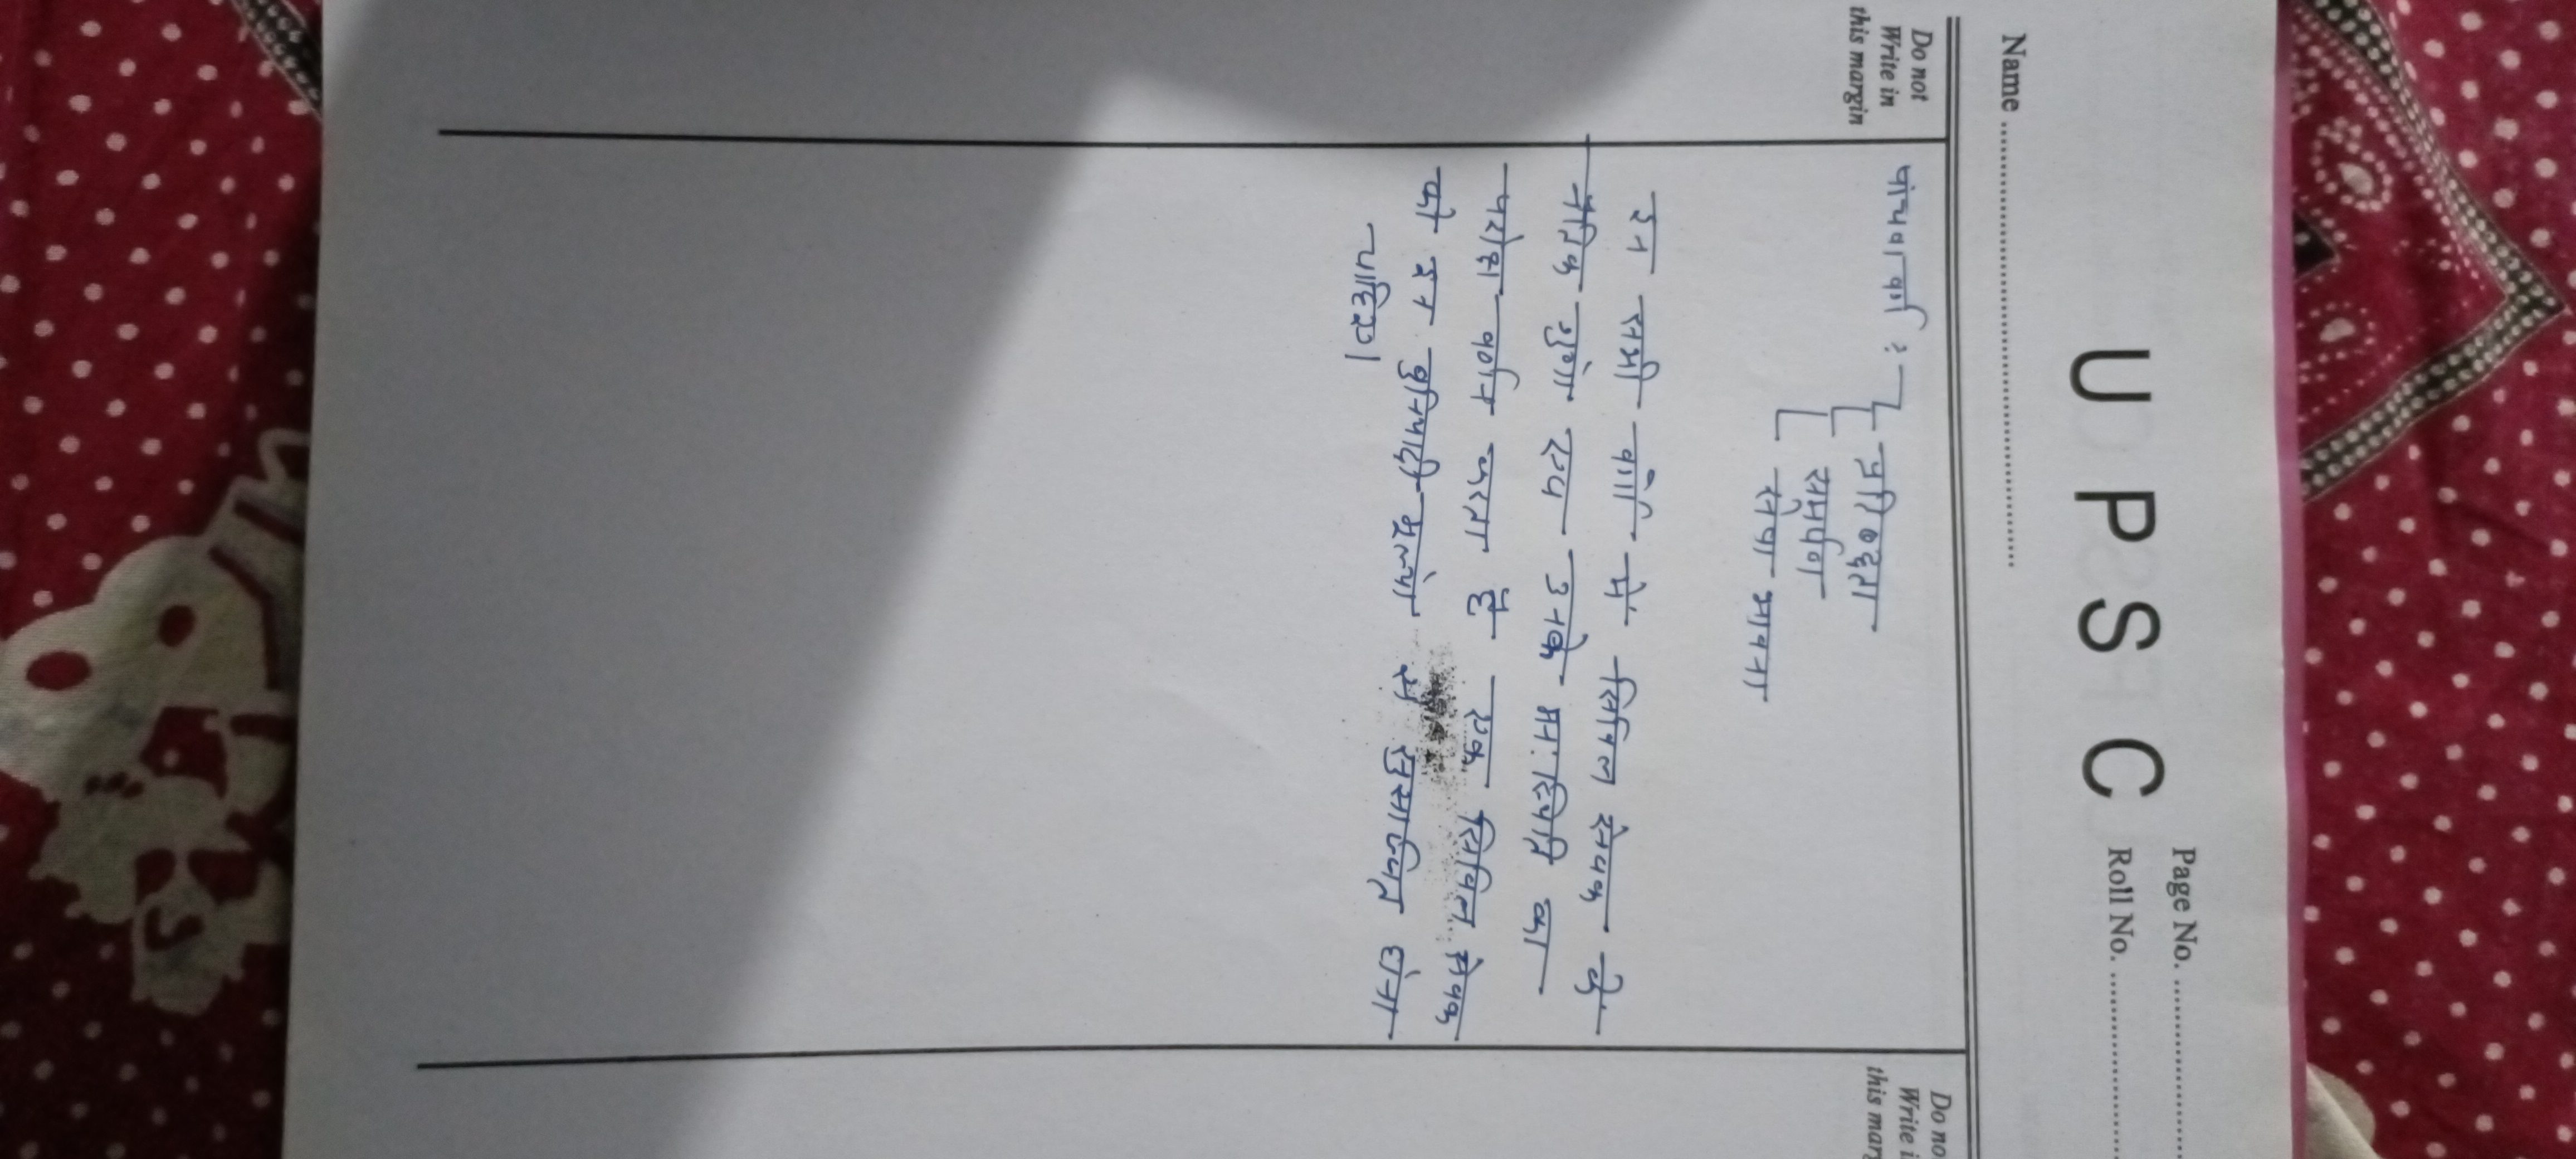 U P S C
Page No. ....................
Name ..............................................
Roll No. ....................
Do not
Write in
this margin
Do no
Write i
this mar
पांचवा वर्ग :-
प्रतिबद्दता
समर्पण
सेवा भावना
इन सभी वर्गो में सिविल सेवक के
नैतिक गुणों एवं उनके मनःस्थिति का
परोक्ष वर्णन करता है एक सिविल सेवक
को इन बुनियादी मूल्यों से सुसज्जित होना
चाहिए।